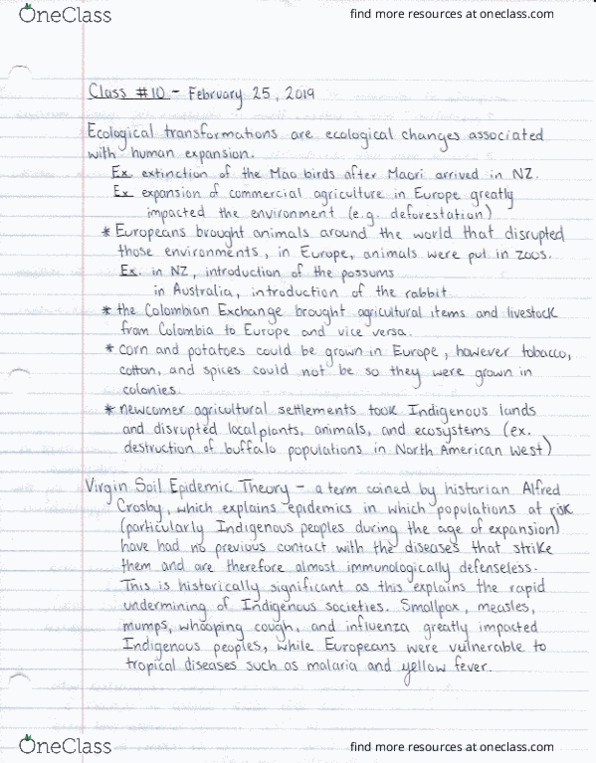 OneClass
find more resources at oneclass.com
Class #10 - February 25, 2019
Ecological transformations are ecological changes associated
with human expansion.
Ex. extinction of the Mao birds after Maori arrived in NZ.
Ex. expansion of commercial agriculture in Europe greatly
impacted the environment (e.g. deforestation)
* Europeans brought animals around the world that disrupted
those environments, in Europe, animals were put in zoos.
Ex. in NZ, introduction of the possums
in Australia, introduction of the rabbit
* the Colombian Exchange brought agricultural items and livestock
from Colombia to Europe and vice versa.
* corn and potatoes could be grown in Europe, however tobacco,
cotton, and spices could not be so they were grown in
colonies.
* newcomer agricultural settlements took Indigenous lands
and disrupted local plants, animals, and ecosystems (ex.
destruction of buffalo populations in North American West)
Virgin Soil Epidemic Theory - a term coined by historian Alfred
Crosby, which explains epidemics in which populations at risk
(particularly Indigenous peoples during the age of expansion)
have had no previous contact with the diseases that strike
them and are therefore almost immunologically defenseless.
This is historically significant as this explains the rapid
undermining of Indigenous societies. Smallpox, measles,
mumps, whooping cough, and influenza greatly impacted
Indigenous peoples, while Europeans were vulnerable to
tropical diseases such as malaria and yellow fever.
OneClass
find more resources at oneclass.com